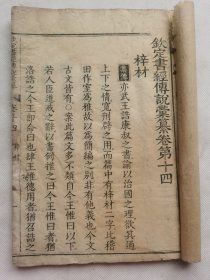 欽定書經傳說彙纂卷第十四
梓材
集傳亦武王誥康叔之書諭以治國之理欲其通
上下之情寬刑辟之用而篇中有梓材二字比稽
田作室為雅故以為簡編之別非有他義也今文
古文皆有○案此篇文多不類自今王惟曰以下
若人臣進戒之辭以書例推之曰今王惟曰者猶
洛誥之今王即命曰也肆王惟德用者猶召誥之
欽定書經傳說彙纂